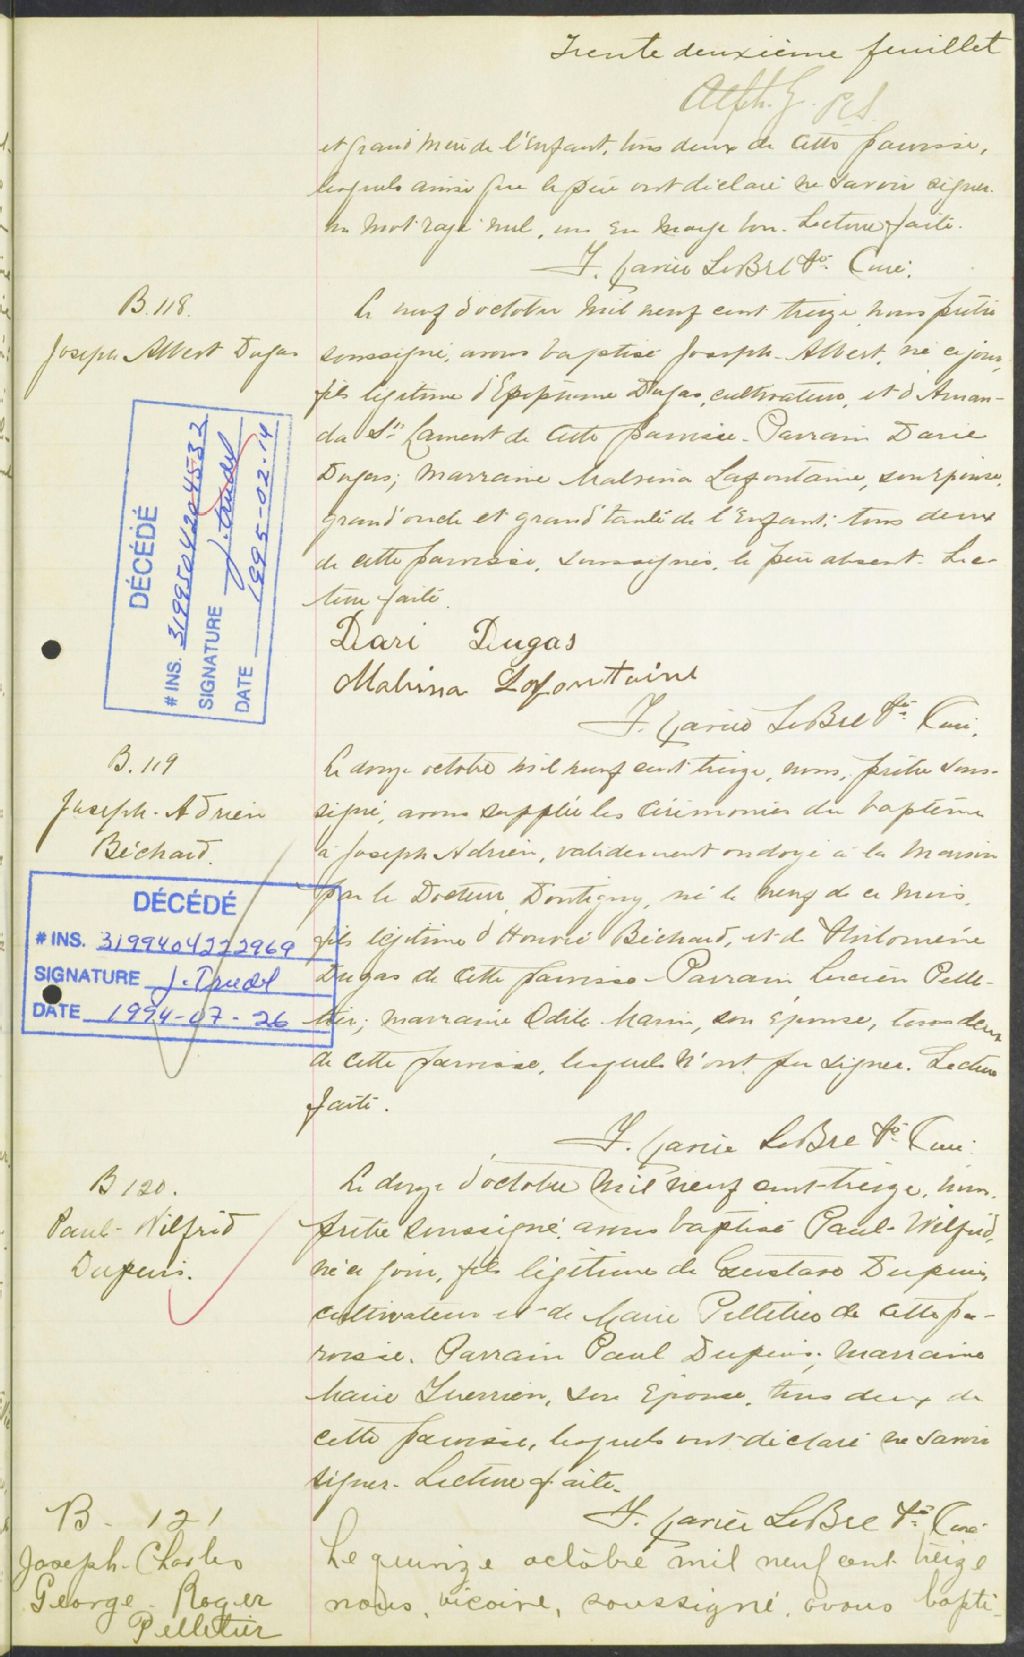 Trente deuxième feuillet
Alph. G. P.S.
et grand'mère de l'enfant, tous deux de cette paroisse,
lesquels ainsi que le père ont déclaré ne savoir signer.
un mot rayé nul, un en marge bon. Lecture faite.
F. Xavier LeBel Ptre Curé.
B. 118.
Joseph Albert Dugas
Le neuf d'octobre mil neuf cent treize, nous prêtre
soussigné, avons baptisé Joseph-Albert, né ce jour,
fils légitime d'Epiphane Dugas, cultivateur, et d'Aman-
da St Laurent de cette paroisse. Parrain Darie
Dugas; marraine Malvina Lafontaine, son épouse,
grand'oncle et grand'tante de l'enfant; tous deux
de cette paroisse, soussignés, le père absent. Lec-
ture faite.
DÉCÉDÉ
# INS. 3199504204532
SIGNATURE J. Trudel
DATE 1995-02-14
Dari Dugas
Malvina Lafontaine
F. Xavier LeBel Ptre Curé.
B. 119
Joseph-Adrien
Béchard.
Le douze octobre mil neuf cent treize, nous, prêtre sous-
signé, avons suppléé les cérémonies du baptême
à Joseph Adrien, validement ondoyé à la maison
par le Docteur Dontigny, né le neuf de ce mois,
fils légitime d'Honoré Béchard, et de Philomène
Dugas de cette paroisse. Parrain Lucien Pelle-
tier; marraine Odile Marin, son épouse, tous deux
de cette paroisse, lesquels n'ont pu signer. Lecture
faite.
DÉCÉDÉ
# INS. 3199404222969
SIGNATURE J. Trudel
DATE 1994-07-26
F. Xavier LeBel Ptre Curé.
B 120.
Paul-Wilfrid
Dupuis.
Le douze d'octobre mil neuf cent treize, nous,
prêtre soussigné, avons baptisé Paul-Wilfrid,
né ce jour, fils légitime de Gustave Dupuis,
cultivateur et de Marie Pelletier de cette pa-
roisse. Parrain Paul Dupuis; marraine
Marie Guerrien, son épouse, tous deux de
cette paroisse, lesquels ont déclaré ne savoir
signer. Lecture faite.
F. Xavier LeBel Ptre Curé
B. 121
Joseph-Charles
George-Roger
Pelletier
Le quinze octobre mil neuf cent treize
nous, vicaire, soussigné, avons bapti-